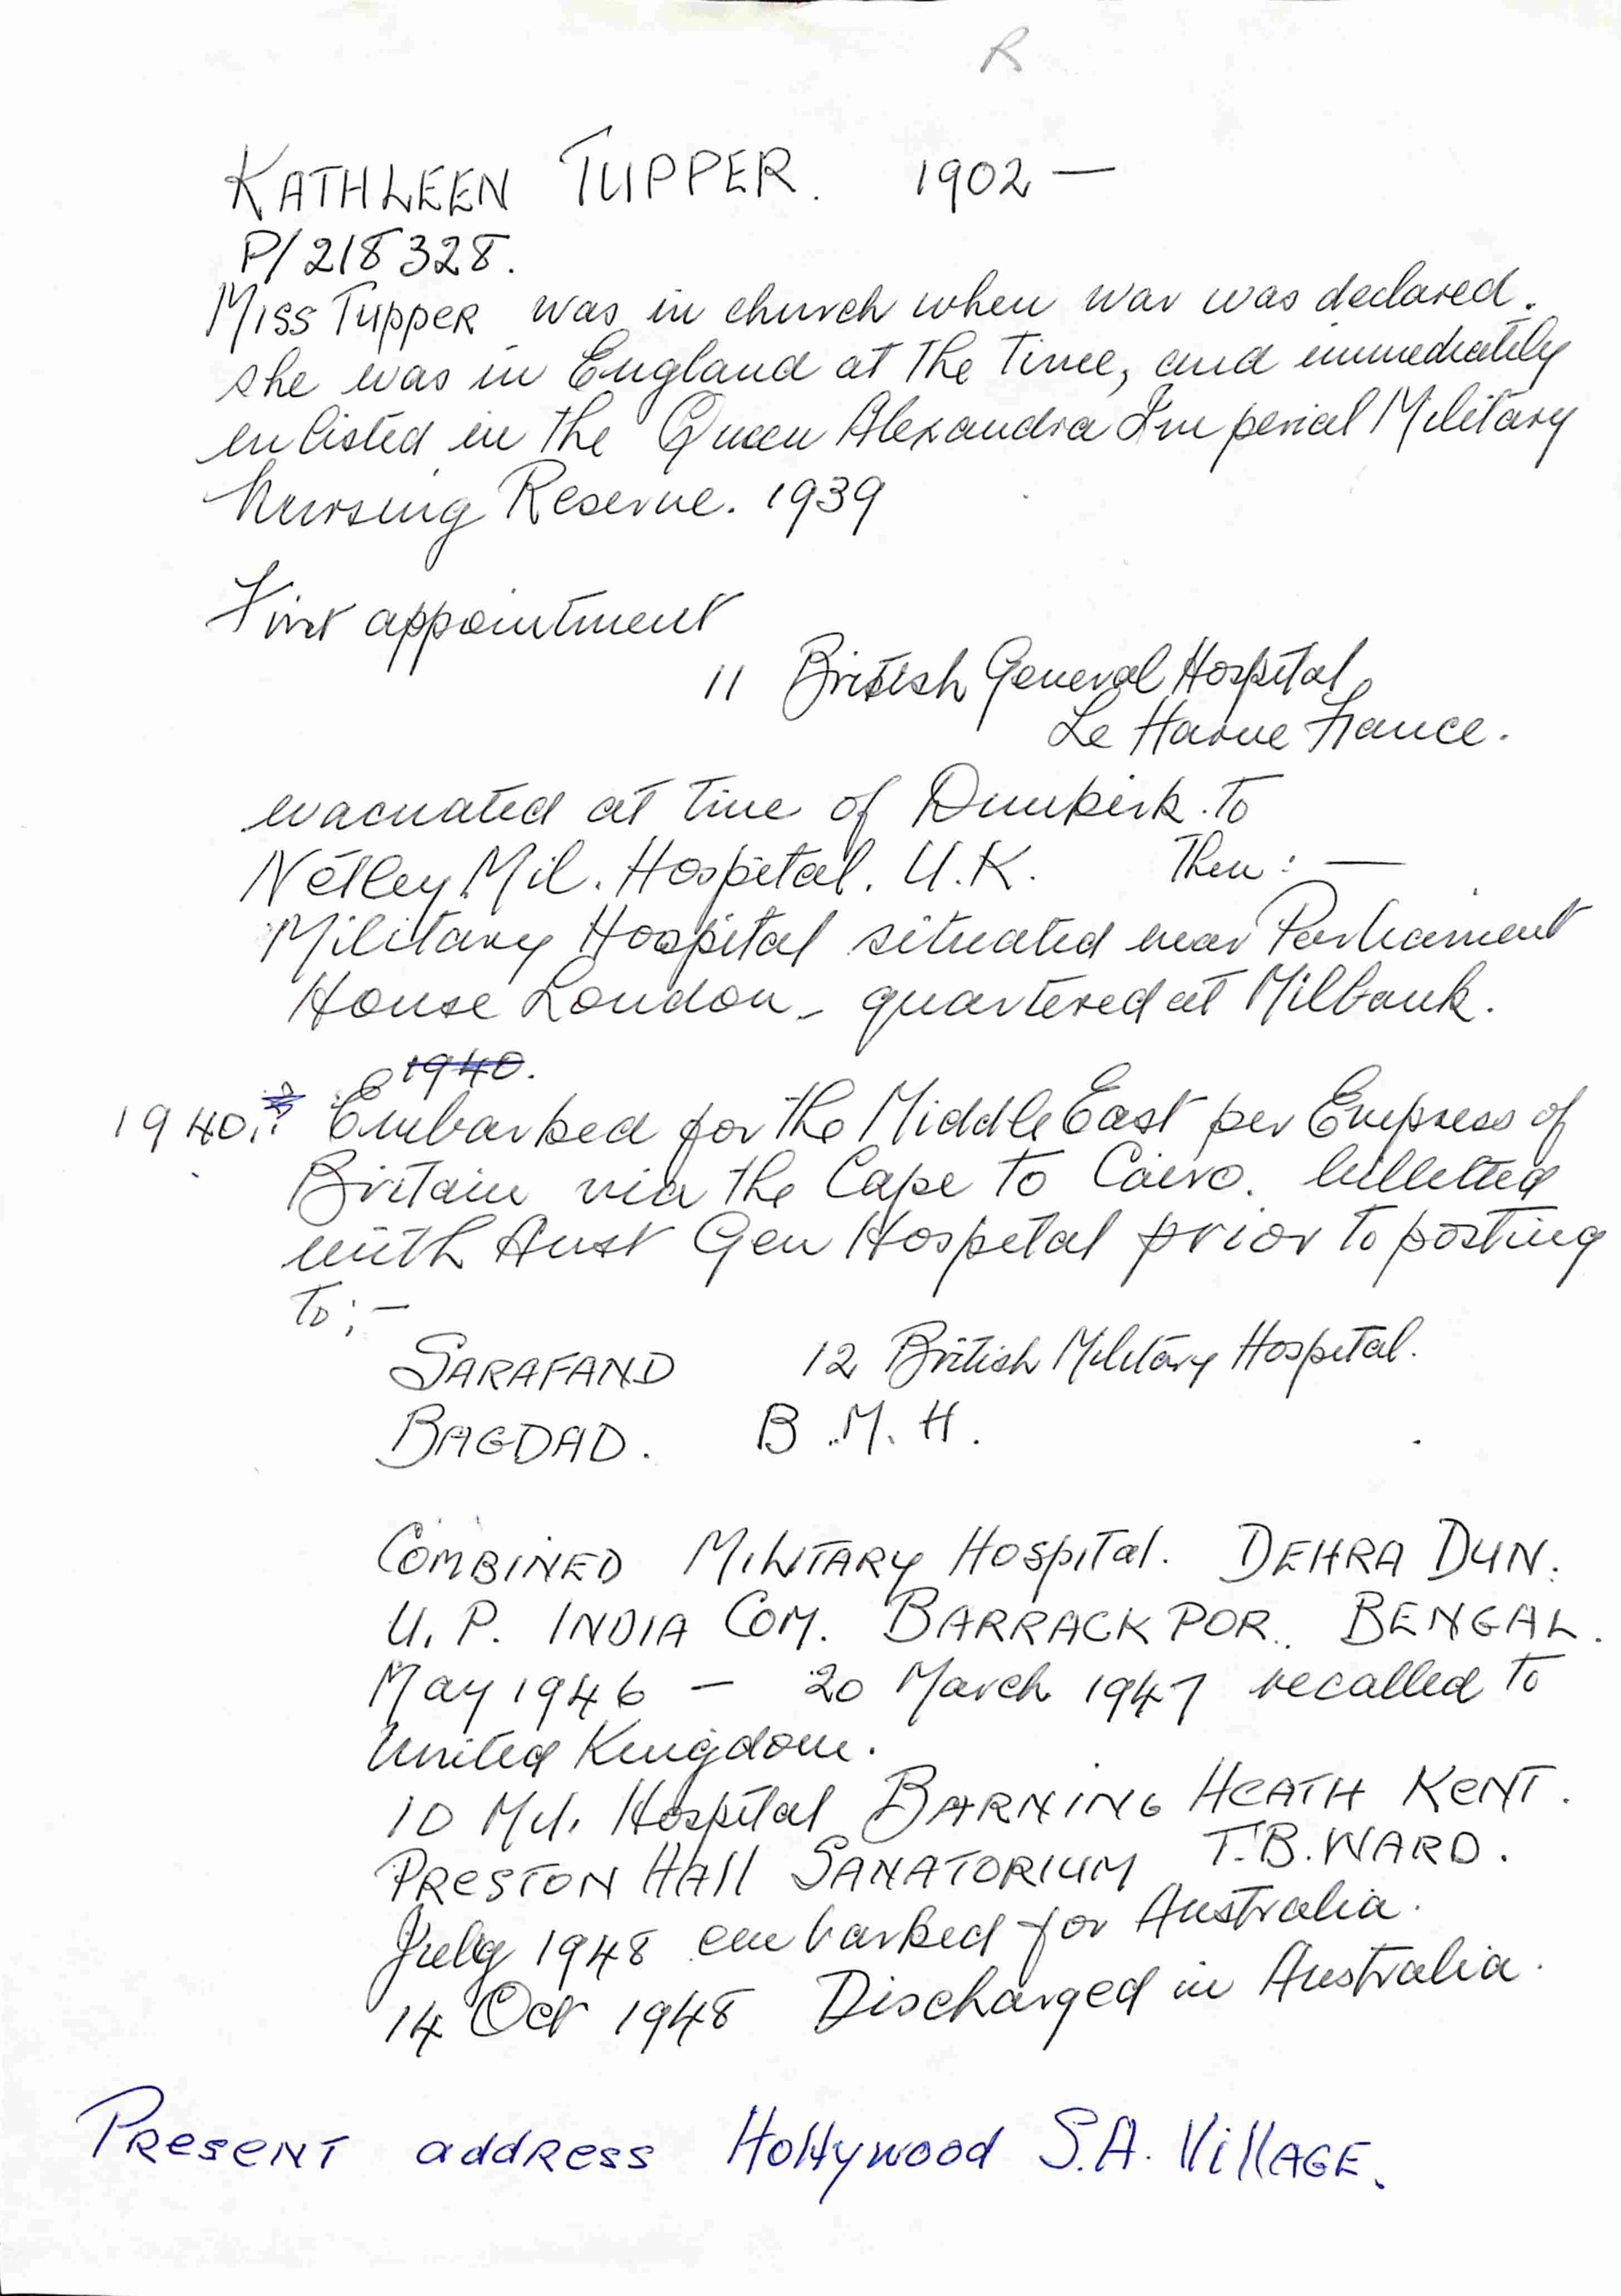 R
KATHLEEN TUPPER. 1902 —
P/218328.
Miss Tupper was in church when war was declared.
she was in England at the time, and immediately
enlisted in the Queen Alexandra Imperial Military
Nursing Reserve. 1939
First appointment
11 British General Hospital
Le Havre France.
evacuated at time of Dunkirk. To
Netley Mil. Hospital. U.K. Then: —
Military Hospital situated near Parliament
House London - quartered at Milbank.
1940.
1940. Embarked for the Middle East per Empress of
Britain via the Cape to Cairo. billetted
with Aust Gen Hospital prior to posting
to: —
SARAFAND 12 British Military Hospital.
BAGDAD. B.M.H.
COMBINED MILITARY HOSPITAL. DEHRA DUN.
U.P. INDIA COM. BARRACKPOR. BENGAL.
May 1946 — 20 March 1947 recalled to
United Kingdom.
10 Mil. Hospital BARNING HEATH KENT.
PRESTON HALL SANATORIUM T.B. WARD.
July 1948 embarked for Australia.
14 Oct 1948 Discharged in Australia.
PRESENT address Hollywood S.A. VillAGE.